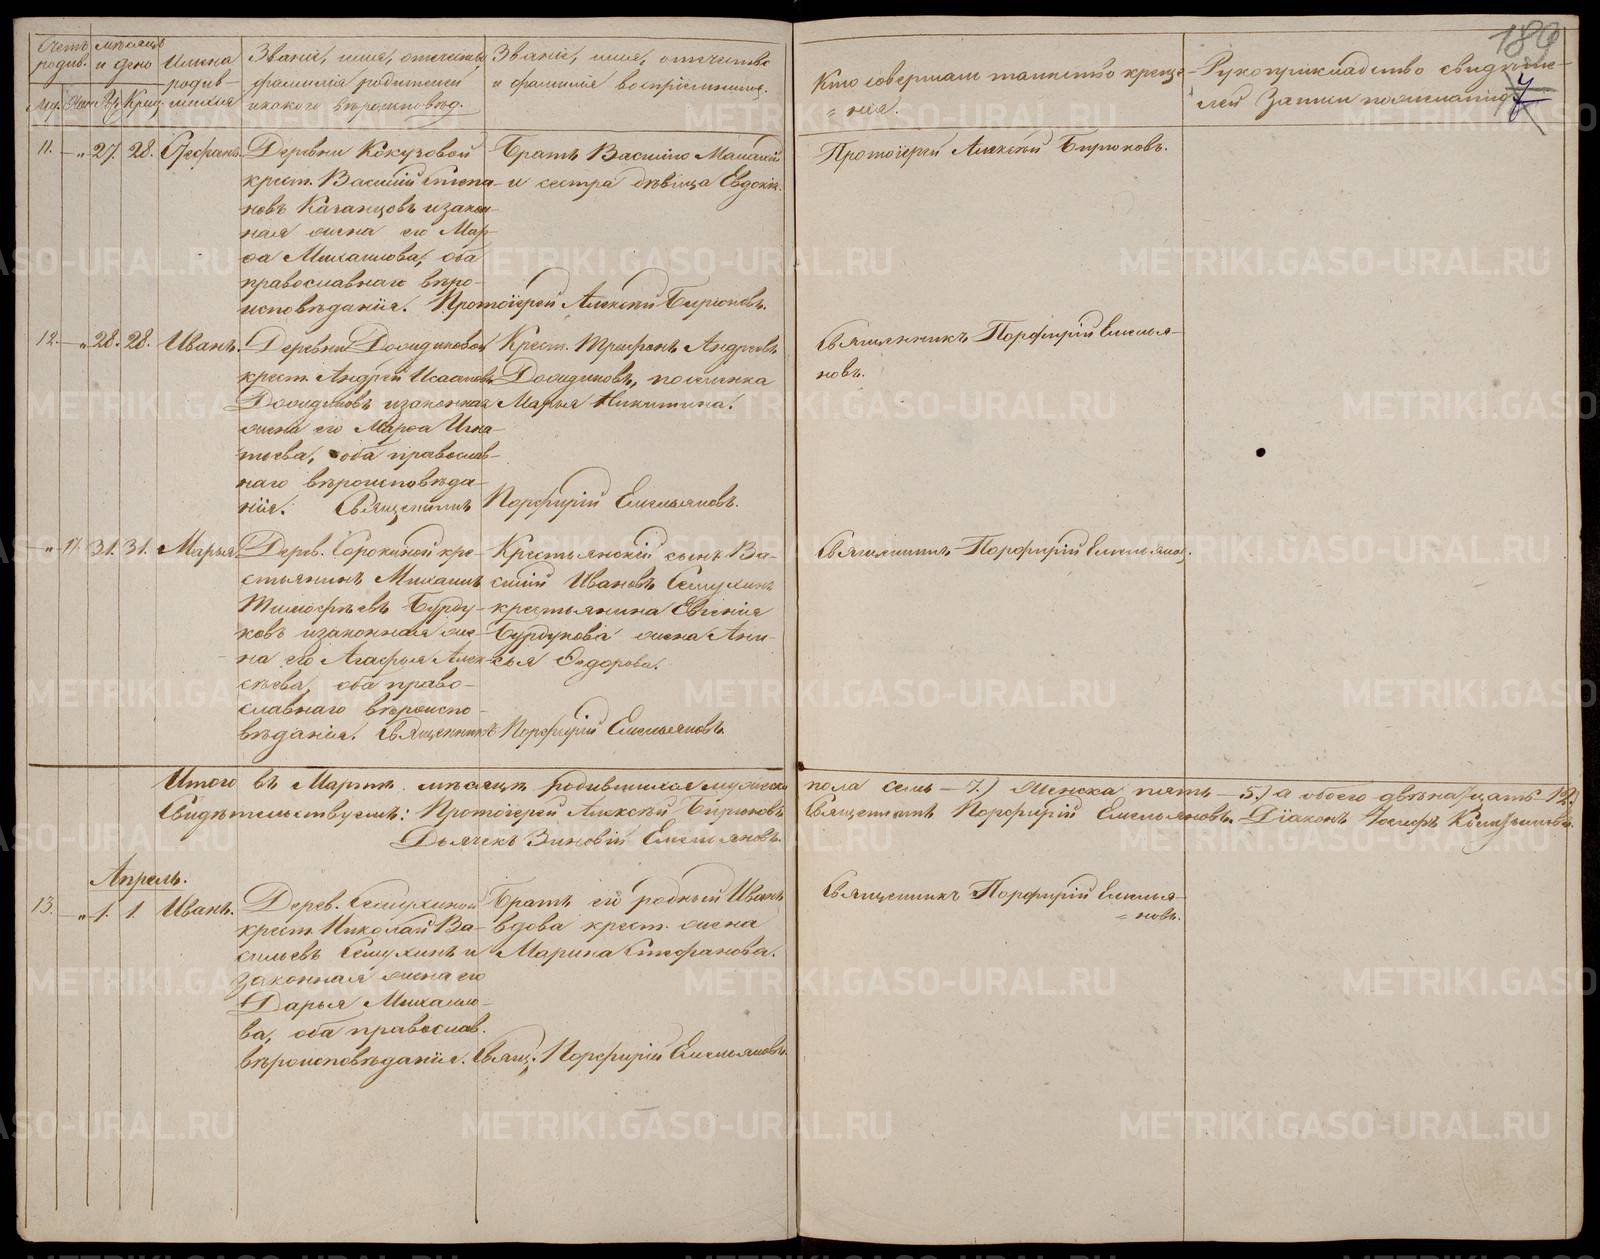 189
7
Счетъ родив. Мѣсяцъ и день Имена родив-шихся
Муж. Жен. Рож. Крещ.
Званіе, имя, отчество, фамилія родителей и какого вѣроисповѣд.
Званіе, имя, отчество и фамилія воспріемник.
Кто совершалъ таинство креще-
= нія.
Рукоприкладство свидѣте-
лей записи по желанію
11. — „ 27. 28. Стефанъ.
Деревни Кокузовой
крест. Василій Степа-
новъ Качанцовъ и закон-
ная жена его Мар-
ѳа Михайлова, оба
православнаго вѣро-
исповѣданія. Протоіерей Алексѣй Бирюковъ.
Братъ Василію Малахій
и сестра дѣвица Евдокія.
Протоіерей Алексѣй Бирюковъ.
12. — „ 28. 28. Иванъ.
Деревни
крест. Андрей Исааковъ
и законная
жена его Марѳа Игна-
тьева, оба православ-
наго вѣроисповѣда-
нія. Священникъ Порфирій Емельяновъ.
Крест. Трифонъ Андреевъ
Марья Никитина.
Священникъ Порфирій Емелья-
новъ.
„ 31. 31. Марья
Дерев. Сорокиной кре-
стьянинъ Михаилъ
Тимофѣевъ Бурду-
ковъ и законная же-
на его Агафья Алек-
сѣева, оба право-
славнаго вѣроиспо-
вѣданія. Священникъ Порфирій Емельяновъ.
Крестьянскій сынъ Ва-
силій Ивановъ Семухинъ
крестьянина Евгенія
Бурдукова жена Ани-
сья Ѳедорова.
Священникъ Порфирій Емельянов.
Итого въ Мартѣ мѣсяцѣ родившихся мужеска пола семь — 7.) Женска пять — 5.) а обоего двѣнадцать 12.)
Свидѣтельствуемъ: Протоіерей Алексѣй Бирюковъ Священникъ Порфирій Емельяновъ. Діаконъ Іосифъ
Дьячекъ Зиновій Емельяновъ.
Апрель.
13. — „ 1. 1. Иванъ.
Дерев. Семухиной
крест. Николай Ва-
сильевъ Семухинъ и
законная жена его
Дарья Михайло-
ва, оба православ.
вѣроисповѣданія. Свящ. Порфирій Емельяновъ.
Братъ его родный Иванъ
вдова крест. жена
Марина Стефанова.
Священникъ Порфирій Емелья-
= новъ.
METRIKI.GASO-URAL.RU